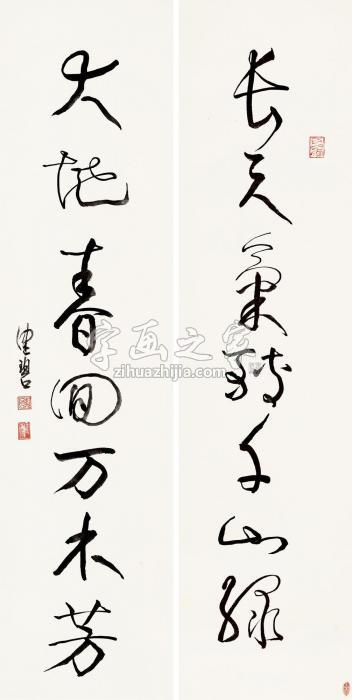 长天气转千山绿
大地春回万木芳
字画之家
zihuazhijia.com